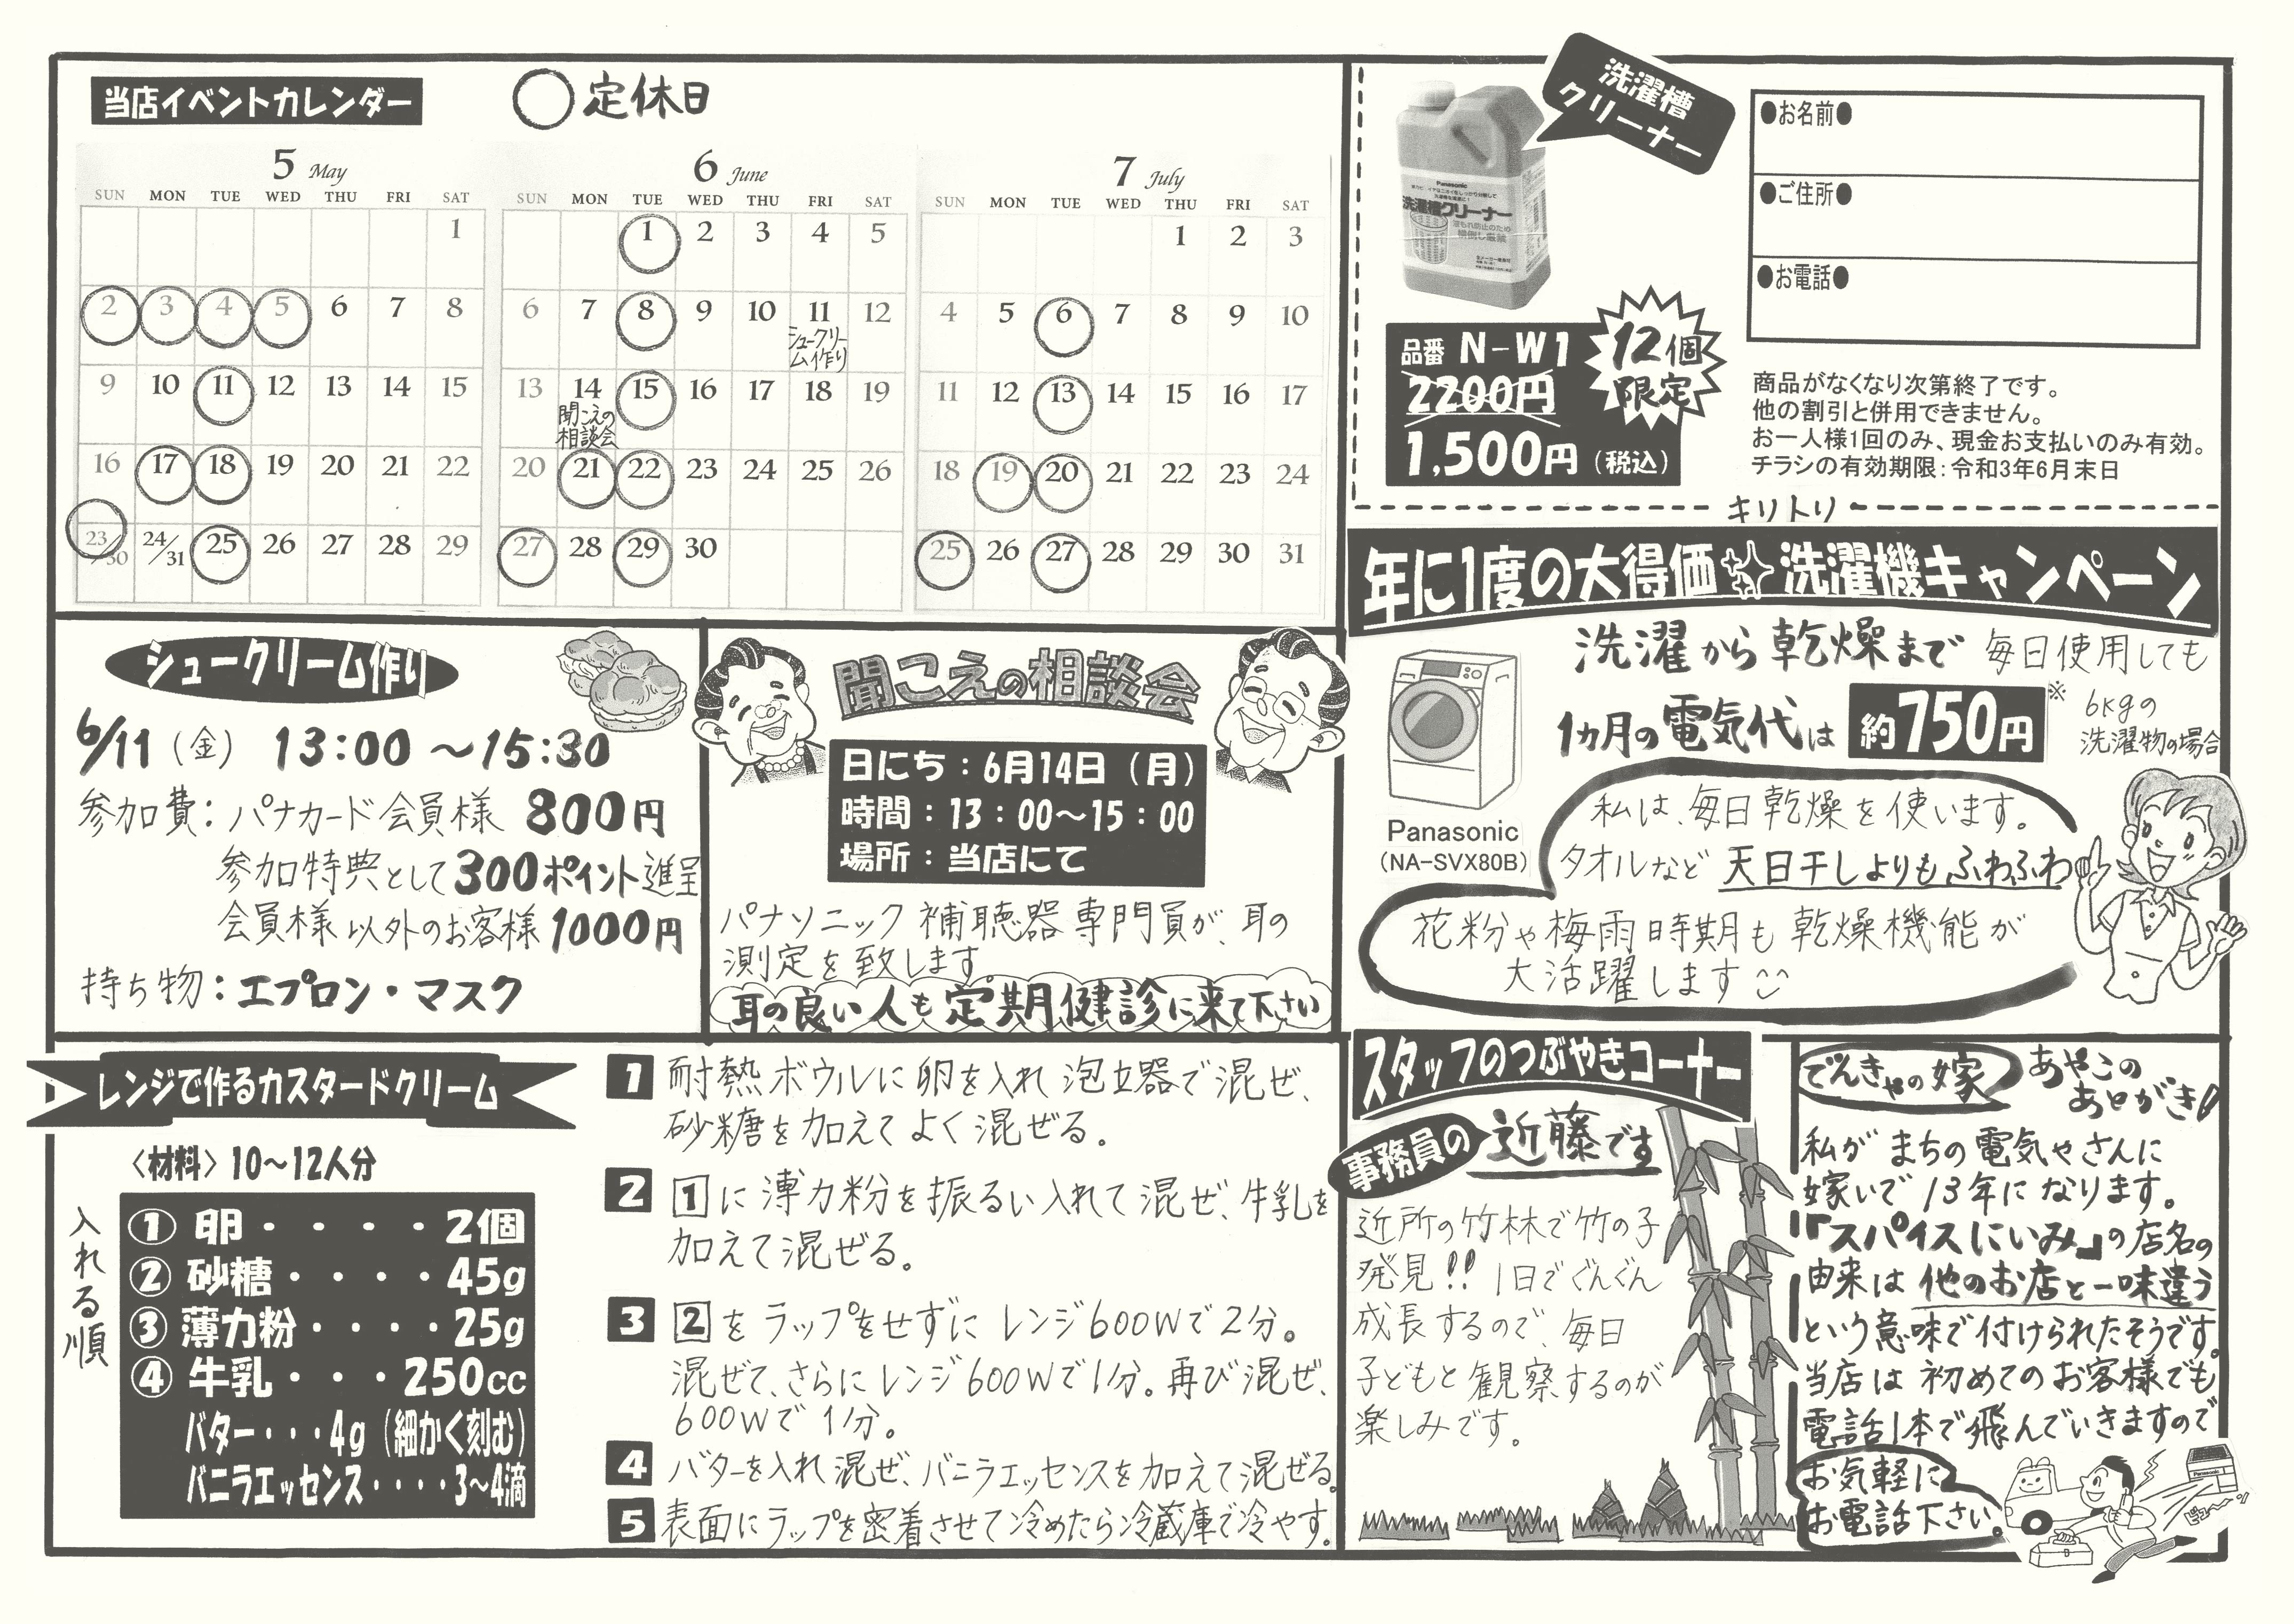 当店イベントカレンダー
定休日
5 May
SUN MON TUE WED THU FRI SAT
1
2 3 4 5 6 7 8
9 10 11 12 13 14 15
16 17 18 19 20 21 22
23/30 24/31 25 26 27 28 29
6 June
SUN MON TUE WED THU FRI SAT
1 2 3 4 5
6 7 8 9 10 11 12
シュークリー
ム作り
13 14 15 16 17 18 19
聞こえの
相談会
20 21 22 23 24 25 26
27 28 29 30
7 July
SUN MON TUE WED THU FRI SAT
1 2 3
4 5 6 7 8 9 10
11 12 13 14 15 16 17
18 19 20 21 22 23 24
25 26 27 28 29 30 31
洗濯槽
クリーナー
Panasonic
洗濯槽クリーナー
品番 N-W1
2200円
1,500円(税込)
12個
限定
●お名前●
●ご住所●
●お電話●
商品がなくなり次第終了です。
他の割引と併用できません。
お一人様1回のみ、現金お支払いのみ有効。
チラシの有効期限:令和3年6月末日
キリトリ
年に1度の大得価 洗濯機キャンペーン
洗濯から乾燥まで 毎日使用しても
1ヵ月の電気代は 約750円
※6kgの
洗濯物の場合
Panasonic
(NA-SVX80B)
私は、毎日乾燥を使います。
タオルなど 天日干しよりもふわふわ
花粉や梅雨時期も乾燥機能が
大活躍します
シュークリーム作り
6/11(金) 13:00~15:30
参加費:パナカード会員様 800円
参加特典として300ポイント進呈
会員様以外のお客様1000円
持ち物:エプロン・マスク
聞こえの相談会
日にち:6月14日(月)
時間:13:00~15:00
場所:当店にて
パナソニック補聴器専門員が、耳の
測定を致します。
耳の良い人も定期健診に来て下さい
レンジで作るカスタードクリーム
〈材料〉10~12人分
入れる順
① 卵・・・・2個
② 砂糖・・・・45g
③ 薄力粉・・・・25g
④ 牛乳・・・250cc
バター・・・4g(細かく刻む)
バニラエッセンス・・・・3~4滴
1 耐熱ボウルに卵を入れ泡立器で混ぜ、
砂糖を加えてよく混ぜる。
2 1に薄力粉を振るい入れて混ぜ、牛乳を
加えて混ぜる。
3 2をラップをせずにレンジ600Wで2分。
混ぜて、さらにレンジ600Wで1分。再び混ぜ、
600Wで1分。
4 バターを入れ混ぜ、バニラエッセンスを加えて混ぜる。
5 表面にラップを密着させて冷めたら冷蔵庫で冷やす。
スタッフのつぶやきコーナー
事務員の 近藤です
近所の竹林で竹の子
発見!! 1日でぐんぐん
成長するので、毎日
子どもと観察するのが
楽しみです。
でんきやの嫁 あやこの
あとがき!
私がまちの電気やさんに
嫁いで13年になります。
「スパイスにいみ」の店名の
由来は他のお店と一味違う
という意味で付けられたそうです。
当店は初めてのお客様でも
電話1本で飛んでいきますので
お気軽に
お電話下さい。
Panasonic
ピュー